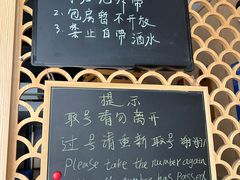 2. 包房暂不开放
3. 禁止自带酒水
提示
取号请勿离开
过号请重新取号 谢谢!
Please take the number again
number has passed